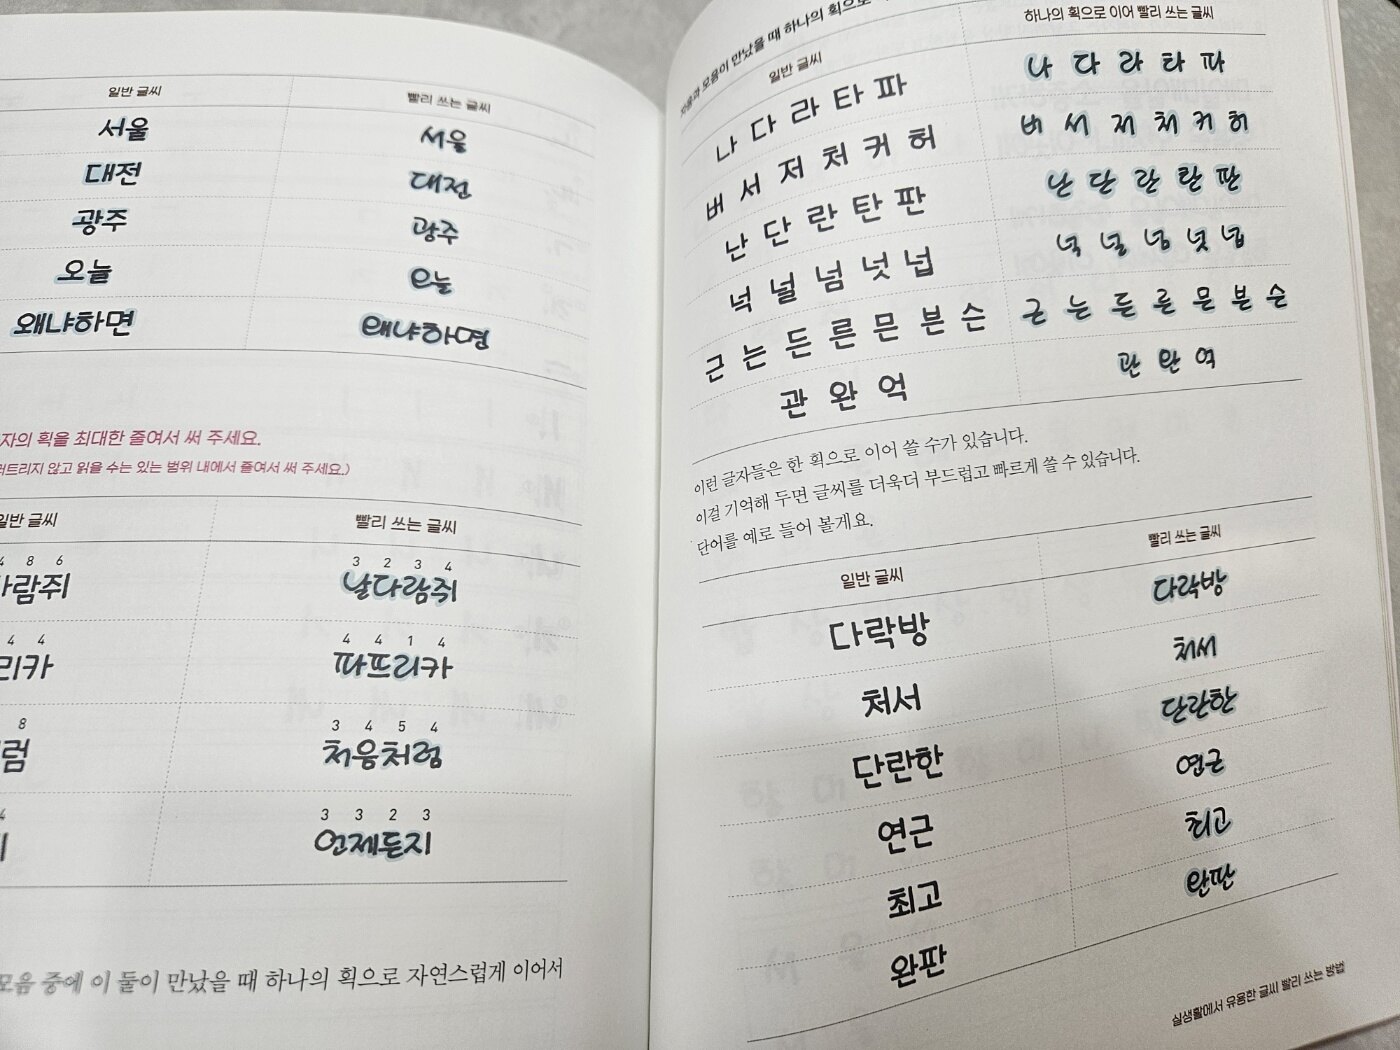 일반 글씨 빨리 쓰는 글씨
서울 서울
대전 대전
광주 광주
오늘 오늘
왜냐하면 왜냐하면
자의 획을 최대한 줄여서 써 주세요.
트리지 않고 읽을 수는 있는 범위 내에서 줄여서 써 주세요.)
일반 글씨 빨리 쓰는 글씨
4 8 6 3 2 3 4
람쥐 날다람쥐
4 4 4 4 1 4
리카 파프리카
8 3 4 5 4
럼 처음처럼
4 3 3 2 3
언제든지
모음 중에 이 둘이 만났을 때 하나의 획으로 자연스럽게 이어서
자음과 모음이 만났을 때 하나의 획으로
일반 글씨 하나의 획으로 이어 빨리 쓰는 글씨
나 다 라 타 파 나 다 라 타 파
버 서 저 처 커 허 버 서 저 처 커 허
난 단 란 탄 판 난 단 란 탄 판
넉 널 넘 넛 넙 넉 널 넘 넛 넙
근 는 든 른 믄 븐 슨 근 는 든 른 믄 븐 슨
관 완 억 관 완 억
이런 글자들은 한 획으로 이어 쓸 수가 있습니다.
이걸 기억해 두면 글씨를 더욱더 부드럽고 빠르게 쓸 수 있습니다.
단어를 예로 들어 볼게요.
일반 글씨 빨리 쓰는 글씨
다락방 다락방
처서 처서
단란한 단란한
연근 연근
최고 최고
완판 완판
실생활에서 유용한 글씨 빨리 쓰는 방법